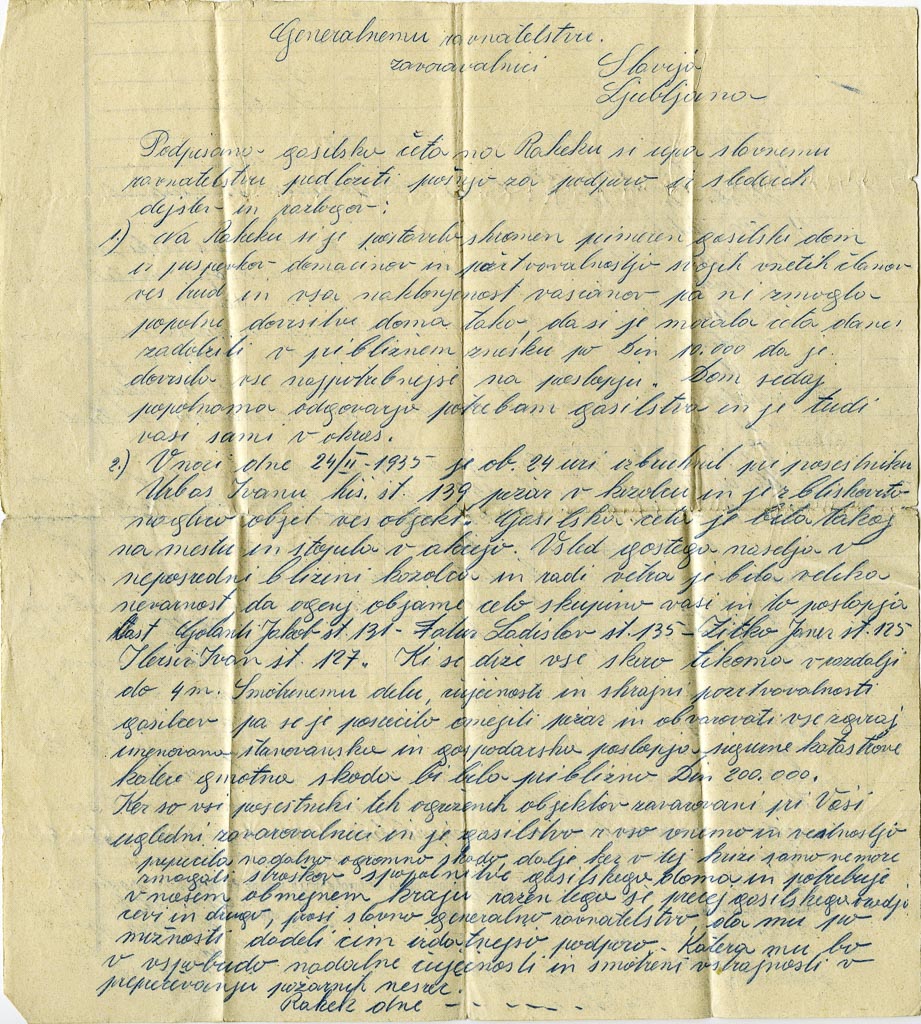 Generalnemu ravnatelstvu.
zavarovalnici Slavija
Ljubljana
Podpisana gasilska četa na Rakeku si upa slavnemu
ravnatelstvu predložiti prošnjo za podporo iz sledečih
dejstev in razlogov:
1.) Na Rakeku si je postavila skromen primeren gasilski dom
iz prispevkov domačinov in požrtvovalnostjo svojih vnetih članov
ves trud in vsa naklonjenost vaščanov pa ni zmogla
popolne dovršitve doma tako, da si je morala četa danes
zadolžiti v približnem znesku po Din 10.000 da je
dovršila vse najpotrebnejše na poslopju. Dom sedaj
popolnoma odgovarja potrebam gasilstva in je tudi
vasi sami v okras.
2.) V noči dne 24/II-1935 je ob 24 uri izbruhnil pri posestniku
Urbas Ivanu hiš. št. 139 požar v kozolcu in je z bliskovito
naglico objel ves objekt. Gasilska četa je bila takoj
na mestu in stopila v akcijo. Vsled gostega naselja v
neposredni bližini kozolca in radi vetra je bila velika
nevarnost da ogenj objame celo skupino vasi in to poslopja
last Jakob št. 131 - Ladislav št. 135 - Žitko Janez št. 125
Ivan št. 127. Ki se drže vse skoro tikoma v razdalji
do 4 m. Smotrenemu delu, čuječnosti in skrajni požrtvovalnosti
gasilcev pa se je posrečilo omejiti požar in obvarovati vse zgoraj
imenovana stanovanska in gospodarska poslopja sigurne katastrofe
katere gmotna škoda bi bila približno Din 200.000.
Ker so vsi posestniki teh ogroženih objektov zavarovani pri Vaši
ugledni zavarovalnici in je gasilstvo z vso vnemo in vestnostjo
prepričila nadalno ogromno škodo, dalje ker v tej krizi samo nemore
zmagati stroškov spopolnitve gasilskega doma in potrebuje
v našem obmejnem kraju razen tega še precej gasilskega orodja
cevi in drugo, prosi slavno generalno ravnatelstvo, da mu po
možnosti dodeli čim izdatnejšo podporo - Katera mu bo
v vspodbudo nadalne čuječnosti in smotreni vstrajnosti v
preprečevanju požarnih nesreč.
Rakek dne - - - - - -